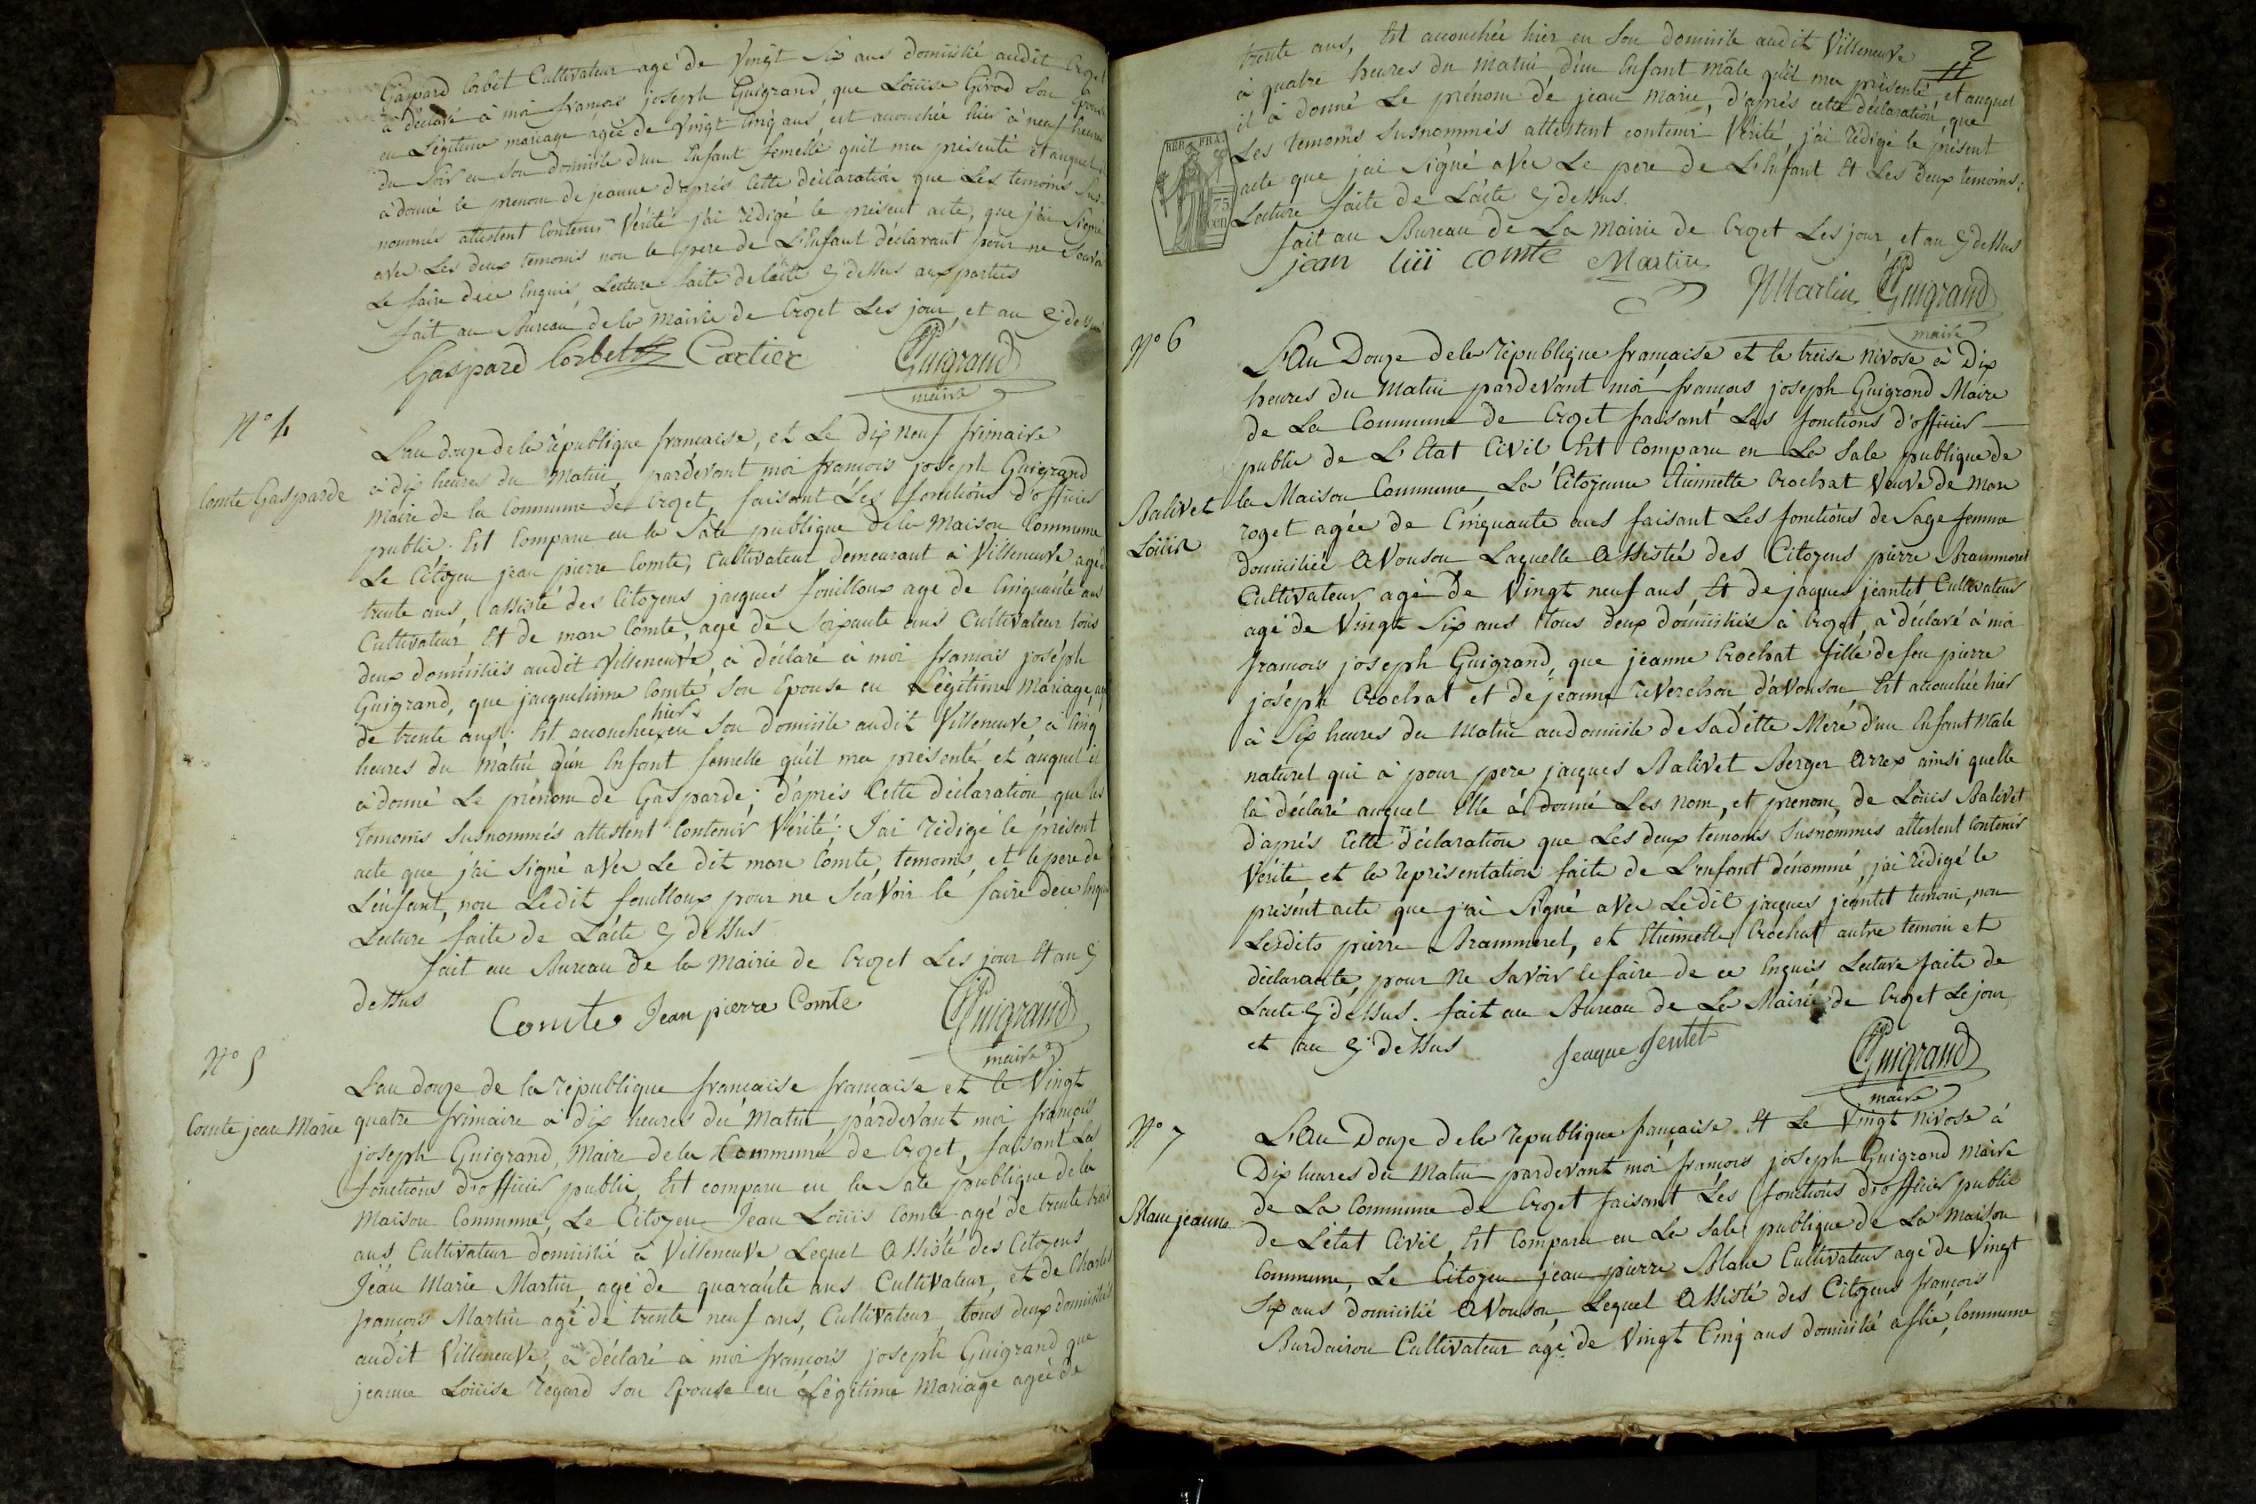 Gaspard Corbet Cultivateur agé de Vingt Six ans domicilié audit Crozet
à déclaré à moi françois joseph Guigrand, que Loüise Girod Son Epouse
en Légitime mariage agée de Vingt Cinq ans, est accouchée hier à neuf heures
du Soir en Son domicile d'un Enfant femelle qu'il ma présenté et auquel il
à donné le prenom de jeanne d'aprés Cette déclaration que Les temoins Sus-
nommés attestent Contenir Vérité j'ai rédigé le présent acte, que j'ai Signé
avec Les deux temoins non le pere de L'Enfant déclarant pour ne Savoir
Le faire de ce Enquis, Lecture faite de L'acte Cy dessus aux parties
fait au Bureau de la Mairie de Crozet Les jour, et an Cy dessus
Gaspard Corbet Cartier Guigrand
maire
N° 4
Comte Gasparde
L'an douze de la république francaise, et Le Dix neuf frimaire
à dix heures du Matin, pardevant moi francois joseph Guigrand
Maire de la Commune de Crozet, faisant Les fonctions d'officier
public. Est Comparu en la Sale publique de la Maison Commune
Le Citoyen jean pierre Comte, Cultivateur demeurant à Villeneuve agé de
trente ans, assisté des Citoyens jacques fouilloux age de Cinquante ans
Cultivateur, Et de marc Comte, agé de Soixante ans Cultivateur tous
deux domiciliés audit Villeneuve, à déclaré à moi francois joséph
Guigrand, que jacquelinne Comte Son Epouse en Légitime Mariage, agée
de trente ans. Est accouchée hier en Son domicile audit Villeneuve à Cinq
heures du Matin d'un Enfant femelle qu'il ma présenté, et auquel il
à donné Le prénom de Gasparde; d'aprés Cette déclaration que les
temoins Susnommés attestent Contenir Vérité. J'ai rédigé le présent
acte que j'ai Signé avec Le dit marc Comte, temoins, et le pere de
L'enfant, non Ledit fouilloux pour ne Scavoir le faire de ce Enquis
Lecture faite de L'acte Cy dessus
fait au Bureau de la Mairie de Crozet Les jour Et an Cy
dessus Comte Jean pierre Comte Guigrand
maire
N° 5
Comte jean Marie
L'an douze de la république francaise francaise et le Vingt
quatre frimaire à dix heures du Matin, pardevant moi françois
joseph Guigrand, Maire de la Commune de Crozet, faisant Les
fonctions d'officier public, Est comparu en la Sale publique de la
Maison Commune, Le Citoyen Jean Loüis Comte agé de trente trois
ans Cultivateur domicilié à Villeneuve Lequel Assisté des Citoyens
Jéan Marie Martin, agé de quarante ans Cultivateur, et de Charles
françois Martin agé de trente neuf ans, Cultivateur, tous deux domiciliés
audit Villeneuve, à déclaré à moi françois joseph Guigrand que
jeanne Loüise regard Son Epouse en Légitime Mariage agée de
2
trente ans, Est accouchée hier en Son domicile audit Villeneuve
à quatre heures du Matin d'un Enfant Mâle qu'il ma présenté et auquel
il à donné Le prénom de jean Marie, d'aprés cette déclaration que
Les temoins Susnommés attestent contenir Vérité j'ai rédigé le présent
acte que j'ai Signé avec Le pere de L'Enfant Et Les deux temoins;
Lecture faite de L'acte Cy dessus.
fait au Bureau de La Mairie de Crozet Les jour, et an Cy dessus
REP. FRA.
75
cen
jean luii comte Martin
Martin Guigrand
maire
N° 6
Balivet
Loüis
L'An Douze de la république française et le treise Nivose à Dix
heures du Matin pardevant moi, françois joseph Guigrand Maire
de La Commune de Crozet faisant Les fonctions d'officier
public de L'Etat Civil Est Comparu en La Sale publique de
la Maison Commune, La Citoyenne Etiennette Crochat Veuve de Marc
roget agée de Cinquante ans faisant Les fonctions de Sage femme
domiciliée Avouson Laquelle Assistée des Citoyens pierre Brammerel
Cultivateur, agé De Vingt neuf ans, Et de jacques jeantet Cultivateur
agé de Vingt Six ans tous deux domiciliés à Crozet, à déclaré à moi
francois joseph Guigrand, que jéanne Crochat fille de feu pierre
joséph Crochat et de jeanne reverchon d'avouson Est accouchée hier
à Six heures du Matin au domicile de Sa ditte Mere, d'un Enfant Male
naturel qui à pour pere jacques Balivet Berger Arrex ainsi quelle
l'à déclaré auquel Elle à donné Les nom, et prenom, de Loüis Balivet
d'aprés Cette déclaration que Les deux témoins Susnommés attestent Contenir
Vérité et la représentation faite de L'enfant dénommé, j'ai rédigé le
présent acte que j'ai Signé avec Ledit jacques jeantet temoin, non
Lesdits pierre Brammerel, et Etiennette Crochat autre temoin et
déclarante, pour Ne Savoir le faire de ce Enquis Lecture faite de
L'acte Cy dessus. fait au Bureau de La Mairie de Crozet Le jour
et an Cy dessus Jeaque Jentet Guigrand
maire
N° 7
Blanc jeanne
L'An Douze de la république française. Et Le Vingt Nivose à
Dix heures du Matin pardevant moi françois joseph Guigrand Maire
de La Commune de Crozet faisant Les fonctions d'officier public
de L'état Civil, Est Comparu en La Sale publique de La Maison
Commune, Le Citoyen jean pierre Blanc Cultivateur agé de Vingt
Six ans domicilié Avouson, Lequel Assisté des Citoyens françois
Burdairon Cultivateur agé de Vingt Cinq ans domicilié a flié, Commune